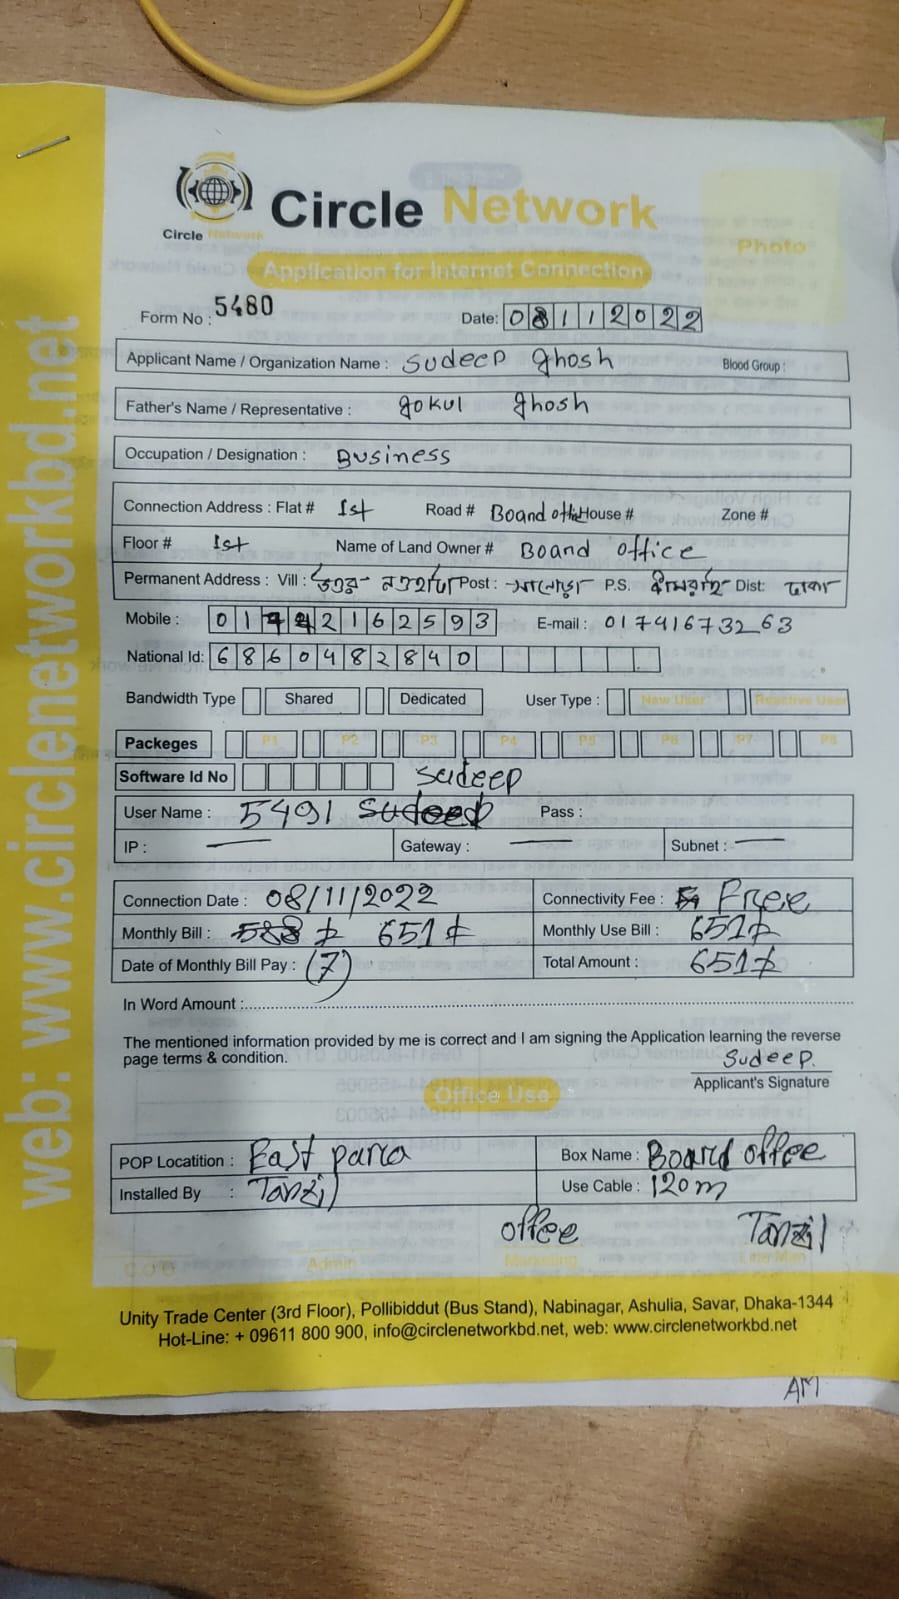 Circle Network
Circle Network
Photo
Application for Internet Connection
Form No : 5480
Date: 08112022
Applicant Name / Organization Name : Sudeep Ghosh Blood Group :
Father's Name / Representative : Gokul Ghosh
Occupation / Designation : Business
Connection Address : Flat # 1st Road # Board House # Zone #
Floor # 1st Name of Land Owner # Board office
Permanent Address : Vill : উত্তর Post : P.S. ধামরাই Dist: ঢাকা
Mobile : 01 2162593 E-mail : 01741673263
National Id: 6860482840
Bandwidth Type Shared Dedicated User Type : New User Reactive User
Packeges P1 P2 P3 P4 P5 P6 P7 P8
Software Id No Sudeep
User Name : 5491 Pass :
IP : — Gateway : — Subnet : —
Connection Date : 08/11/2022 Connectivity Fee : Free
Monthly Bill : 651 Monthly Use Bill : 651
Date of Monthly Bill Pay : (7) Total Amount : 651
In Word Amount :
The mentioned information provided by me is correct and I am signing the Application learning the reverse
page terms & condition.
Sudeep.
Applicant's Signature
Office Use
POP Locatition : East para Box Name : Board offee
Installed By : Tanzil Use Cable : 120m
offee Tanzil
C O O Admin Marketing Line Man
Unity Trade Center (3rd Floor), Pollibiddut (Bus Stand), Nabinagar, Ashulia, Savar, Dhaka-1344
Hot-Line: + 09611 800 900, info@circlenetworkbd.net, web: www.circlenetworkbd.net
AM
web: www.circlenetworkbd.net